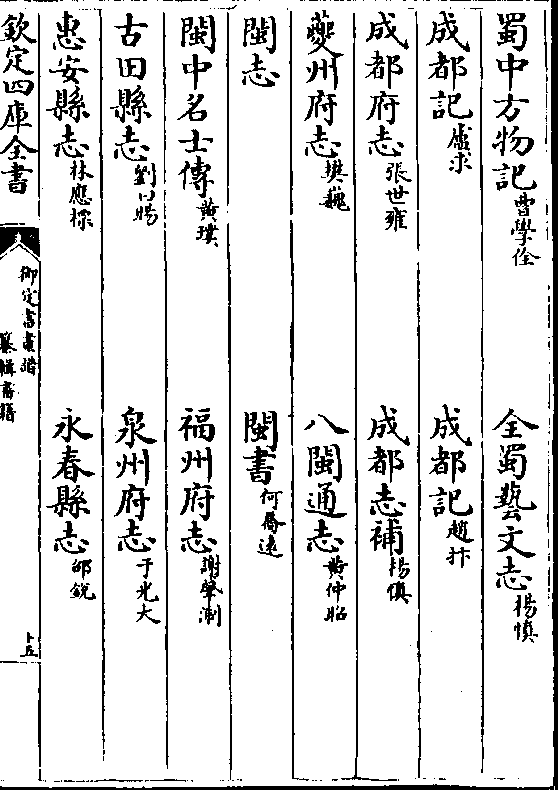 蜀中方物記 曹學佺 全蜀藝文志 楊慎
成都記 盧求 成都記 趙抃
成都府志 張世雍 成都志補 楊慎
夔州府志 樊巍 八閩通志 黃仲昭
閩志 閩書 何喬遠
閩中名士傳 黃璞 福州府志 謝肇淛
古田縣志 劉日暘 泉州府志 于光大
惠安縣志 林應標 永春縣志 邵銳
欽定四庫全書 御定書畫譜 纂輯書籍 十五